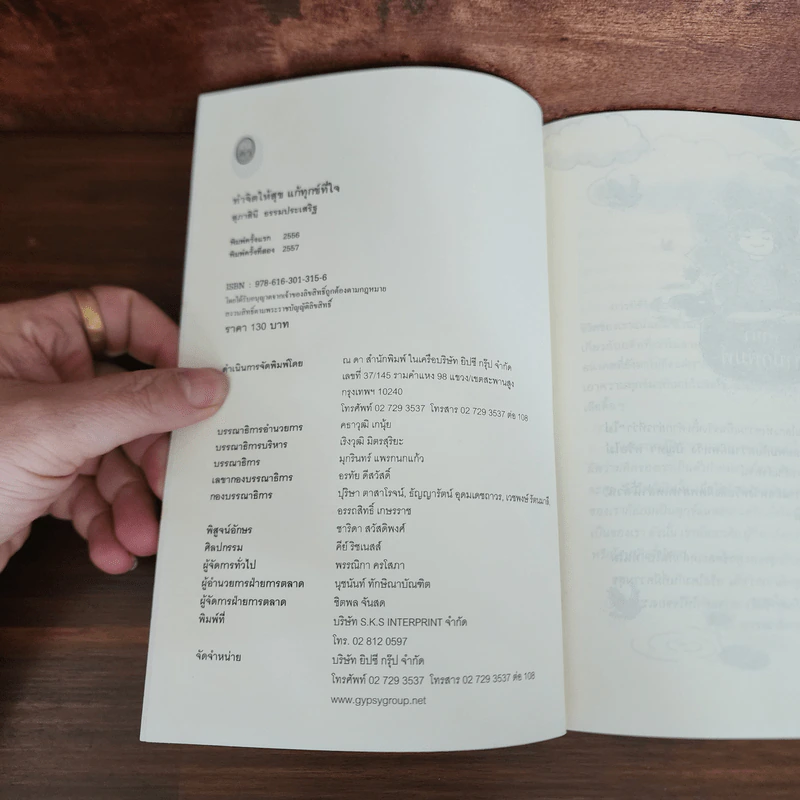 ทำจิตให้สุข แก้ทุกข์ที่ใจ
สุภาสินี ธรรมประเสริฐ
พิมพ์ครั้งแรก 2556
พิมพ์ครั้งที่สอง 2557
ISBN : 978-616-301-315-6
โดยได้รับอนุญาตจากเจ้าของลิขสิทธิ์ถูกต้องตามกฎหมาย
สงวนสิทธิ์ตามพระราชบัญญัติลิขสิทธิ์
ราคา 130 บาท
ดำเนินการจัดพิมพ์โดย ณ ดา สำนักพิมพ์ ในเครือบริษัท ยิปซี กรุ๊ป จำกัด
เลขที่ 37/145 รามคำแหง 98 แขวง/เขตสะพานสูง
กรุงเทพฯ 10240
โทรศัพท์ 02 729 3537 โทรสาร 02 729 3537 ต่อ 108
บรรณาธิการอำนวยการ คธาวุฒิ เกนุ้ย
บรรณาธิการบริหาร เริงวุฒิ มิตรสุริยะ
บรรณาธิการ มุกรินทร์ แพรกนกแก้ว
เลขากองบรรณาธิการ อรทัย ดีสวัสดิ์
กองบรรณาธิการ ปุริษา ตาสาโรจน์, ธัญญารัตน์ อุดมเดชถาวร, เวชพงษ์ รัตนมาลี,
อรรถสิทธิ์ เกษรราช
พิสูจน์อักษร ชาริดา สวัสดิพงศ์
ศิลปกรรม คีย์ ริชเนสส์
ผู้จัดการทั่วไป พรรณิกา ครโสภา
ผู้อำนวยการฝ่ายการตลาด นุชนันท์ ทักษิณาบัณฑิต
ผู้จัดการฝ่ายการตลาด ชิตพล จันสด
พิมพ์ที่ บริษัท S.K.S INTERPRINT จำกัด
โทร. 02 812 0597
จัดจำหน่าย บริษัท ยิปซี กรุ๊ป จำกัด
โทรศัพท์ 02 729 3537 โทรสาร 02 729 3537 ต่อ 108
www.gypsygroup.net